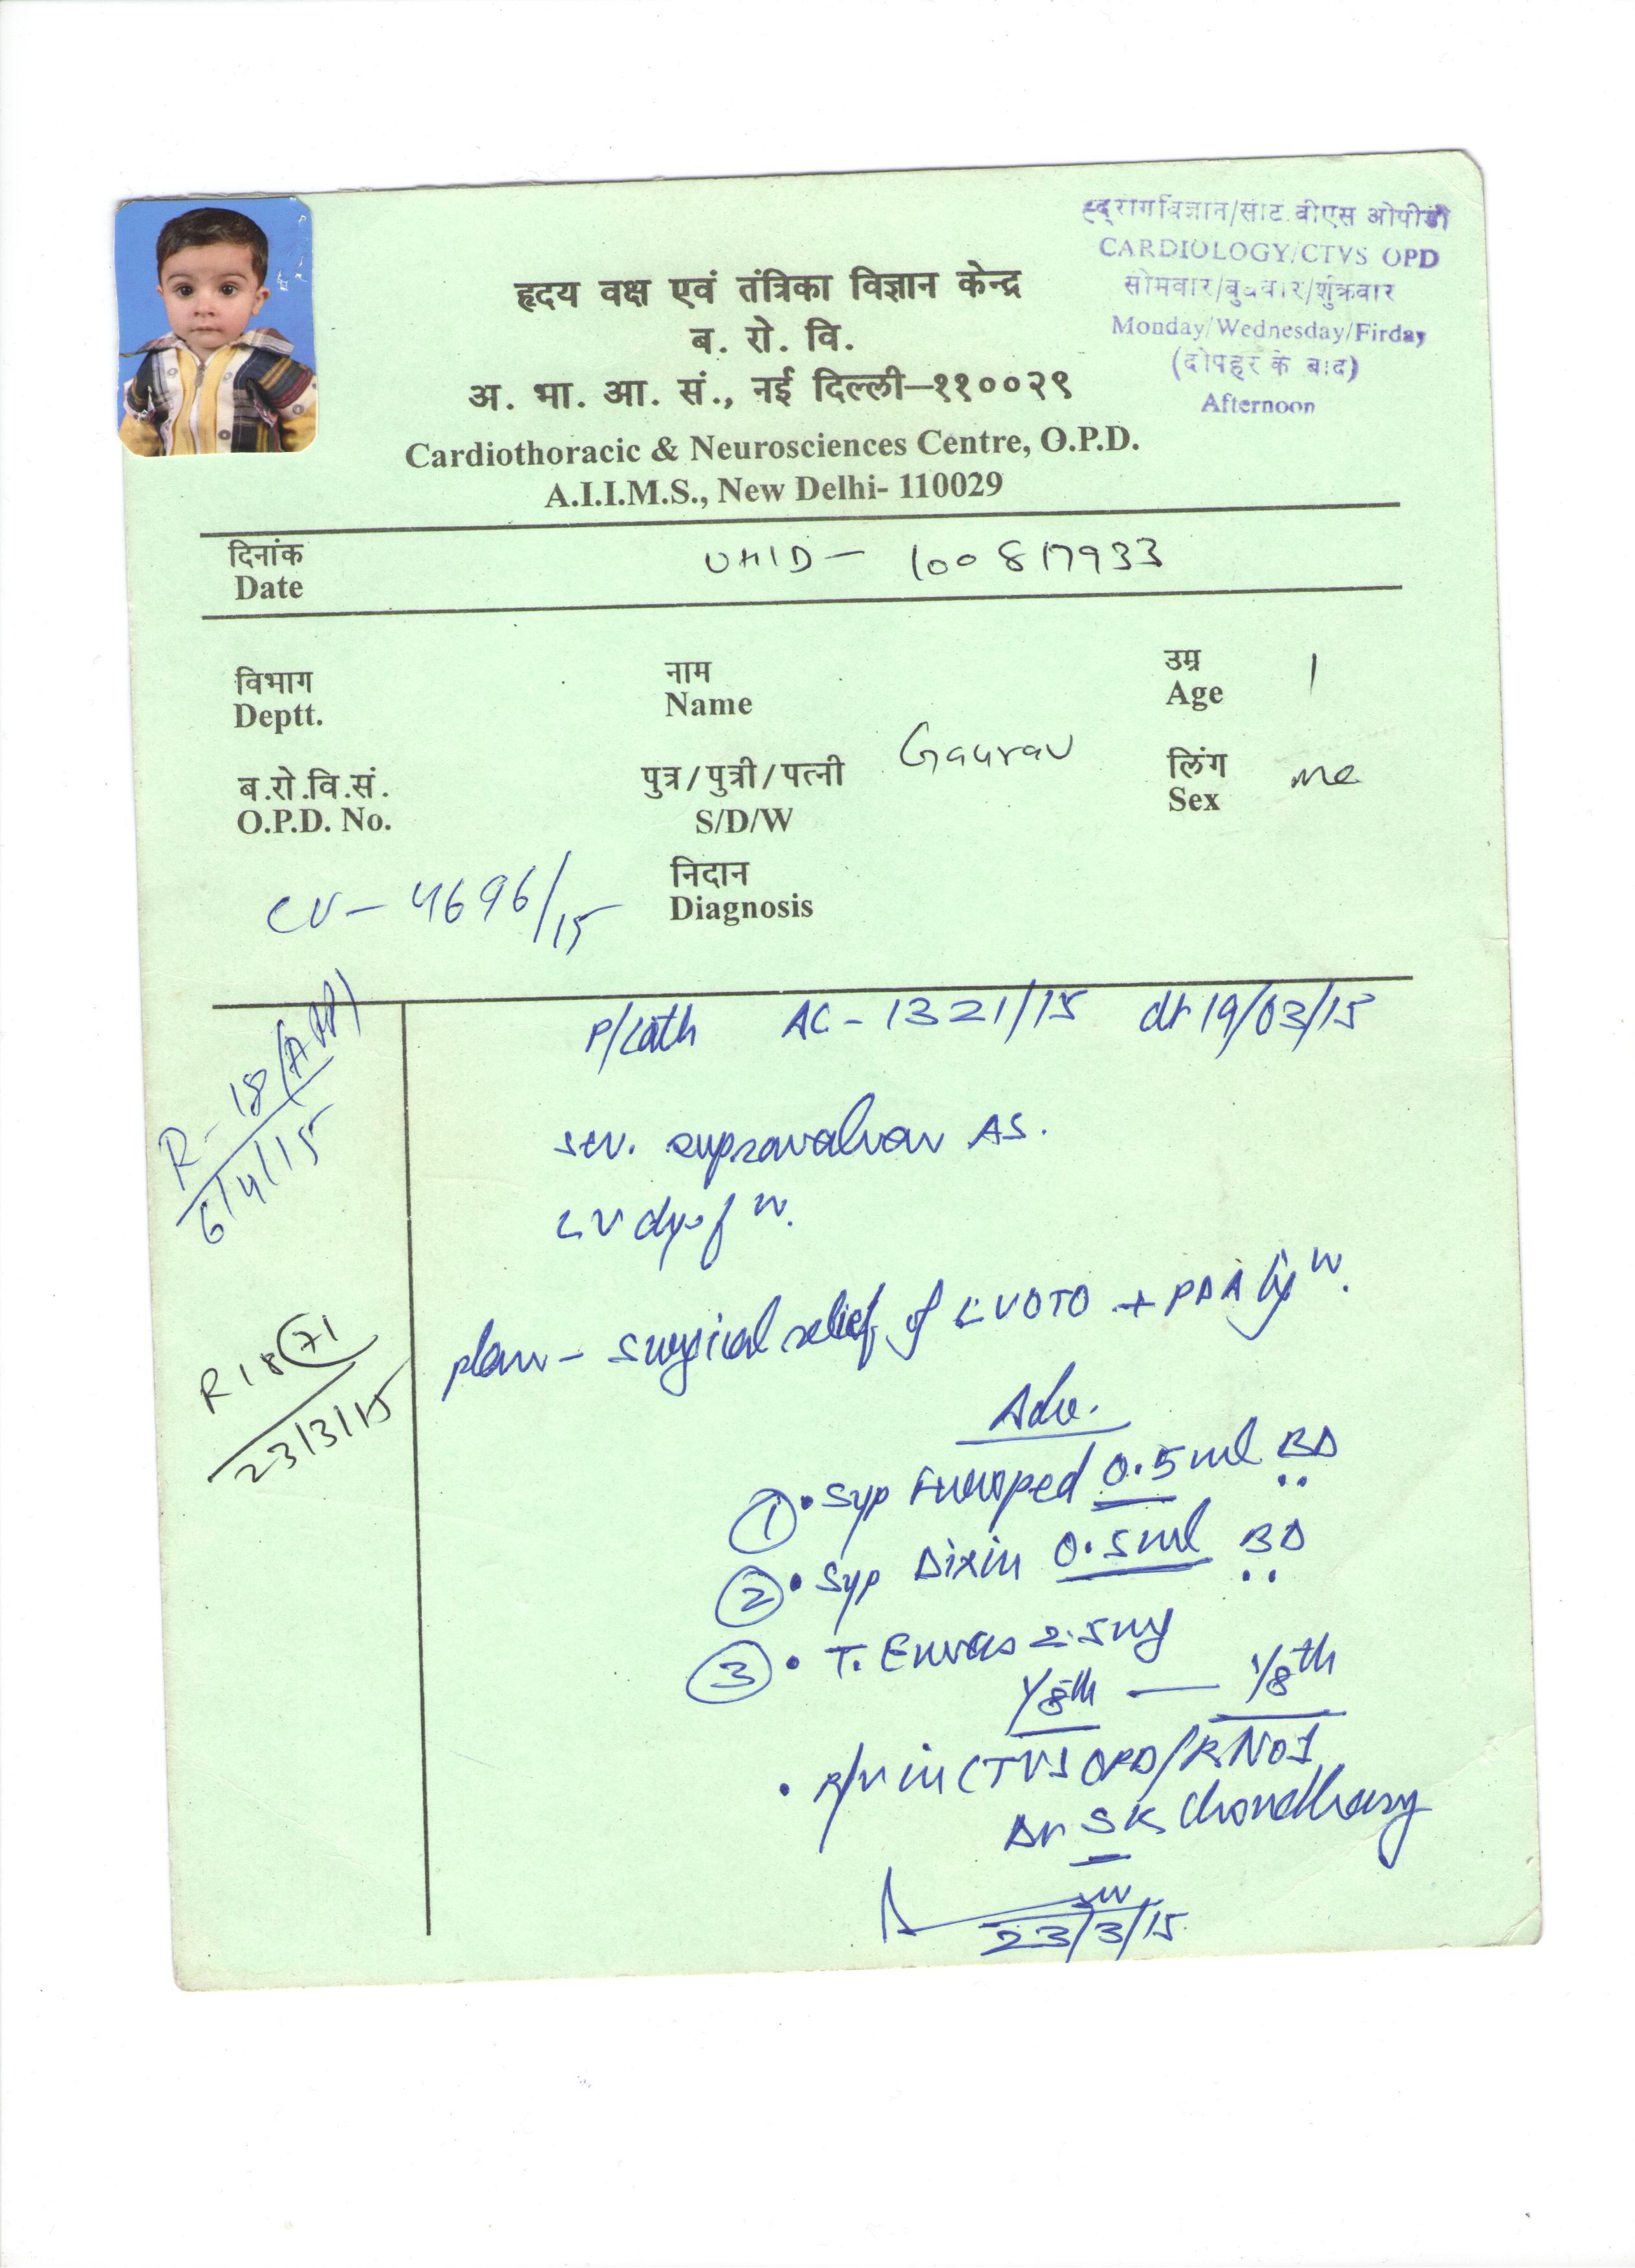 हृदय वक्ष एवं तंत्रिका विज्ञान केन्द्र
ब. रो. वि.
अ. भा. आ. सं., नई दिल्ली–११००२९
Cardiothoracic & Neurosciences Centre, O.P.D.
A.I.I.M.S., New Delhi- 110029
CARDIOLOGY/CTVS OPD
सोमवार/बुधवार/शुक्रवार
Monday/Wednesday/Firday
(दोपहर के बाद)
Afternoon
दिनांक
Date
UHID – 100817933
विभाग
Deptt.
नाम
Name
उम्र
Age 1
ब.रो.वि.सं.
O.P.D. No.
पुत्र/पुत्री/पत्नी
S/D/W
Gaurav
लिंग
Sex
CV – 4696/15
निदान
Diagnosis
P/Cath AC – 1321/15 dt 19/03/15
R – 18
6/4/15
sev. supravalvar AS.
LV dysfn.
plan – surgical relief of LVOTO + PDA lign.
R 18 71
23/3/15
Adv.
① • Syp 0.5 ml BD
② • Syp Dixin 0.5 ml BD
③ • T. Envas 2.5 mg
1/8th — 1/8th
• R/v in CTVS OPD/R No 1
Dr SK Choudhary
23/3/15